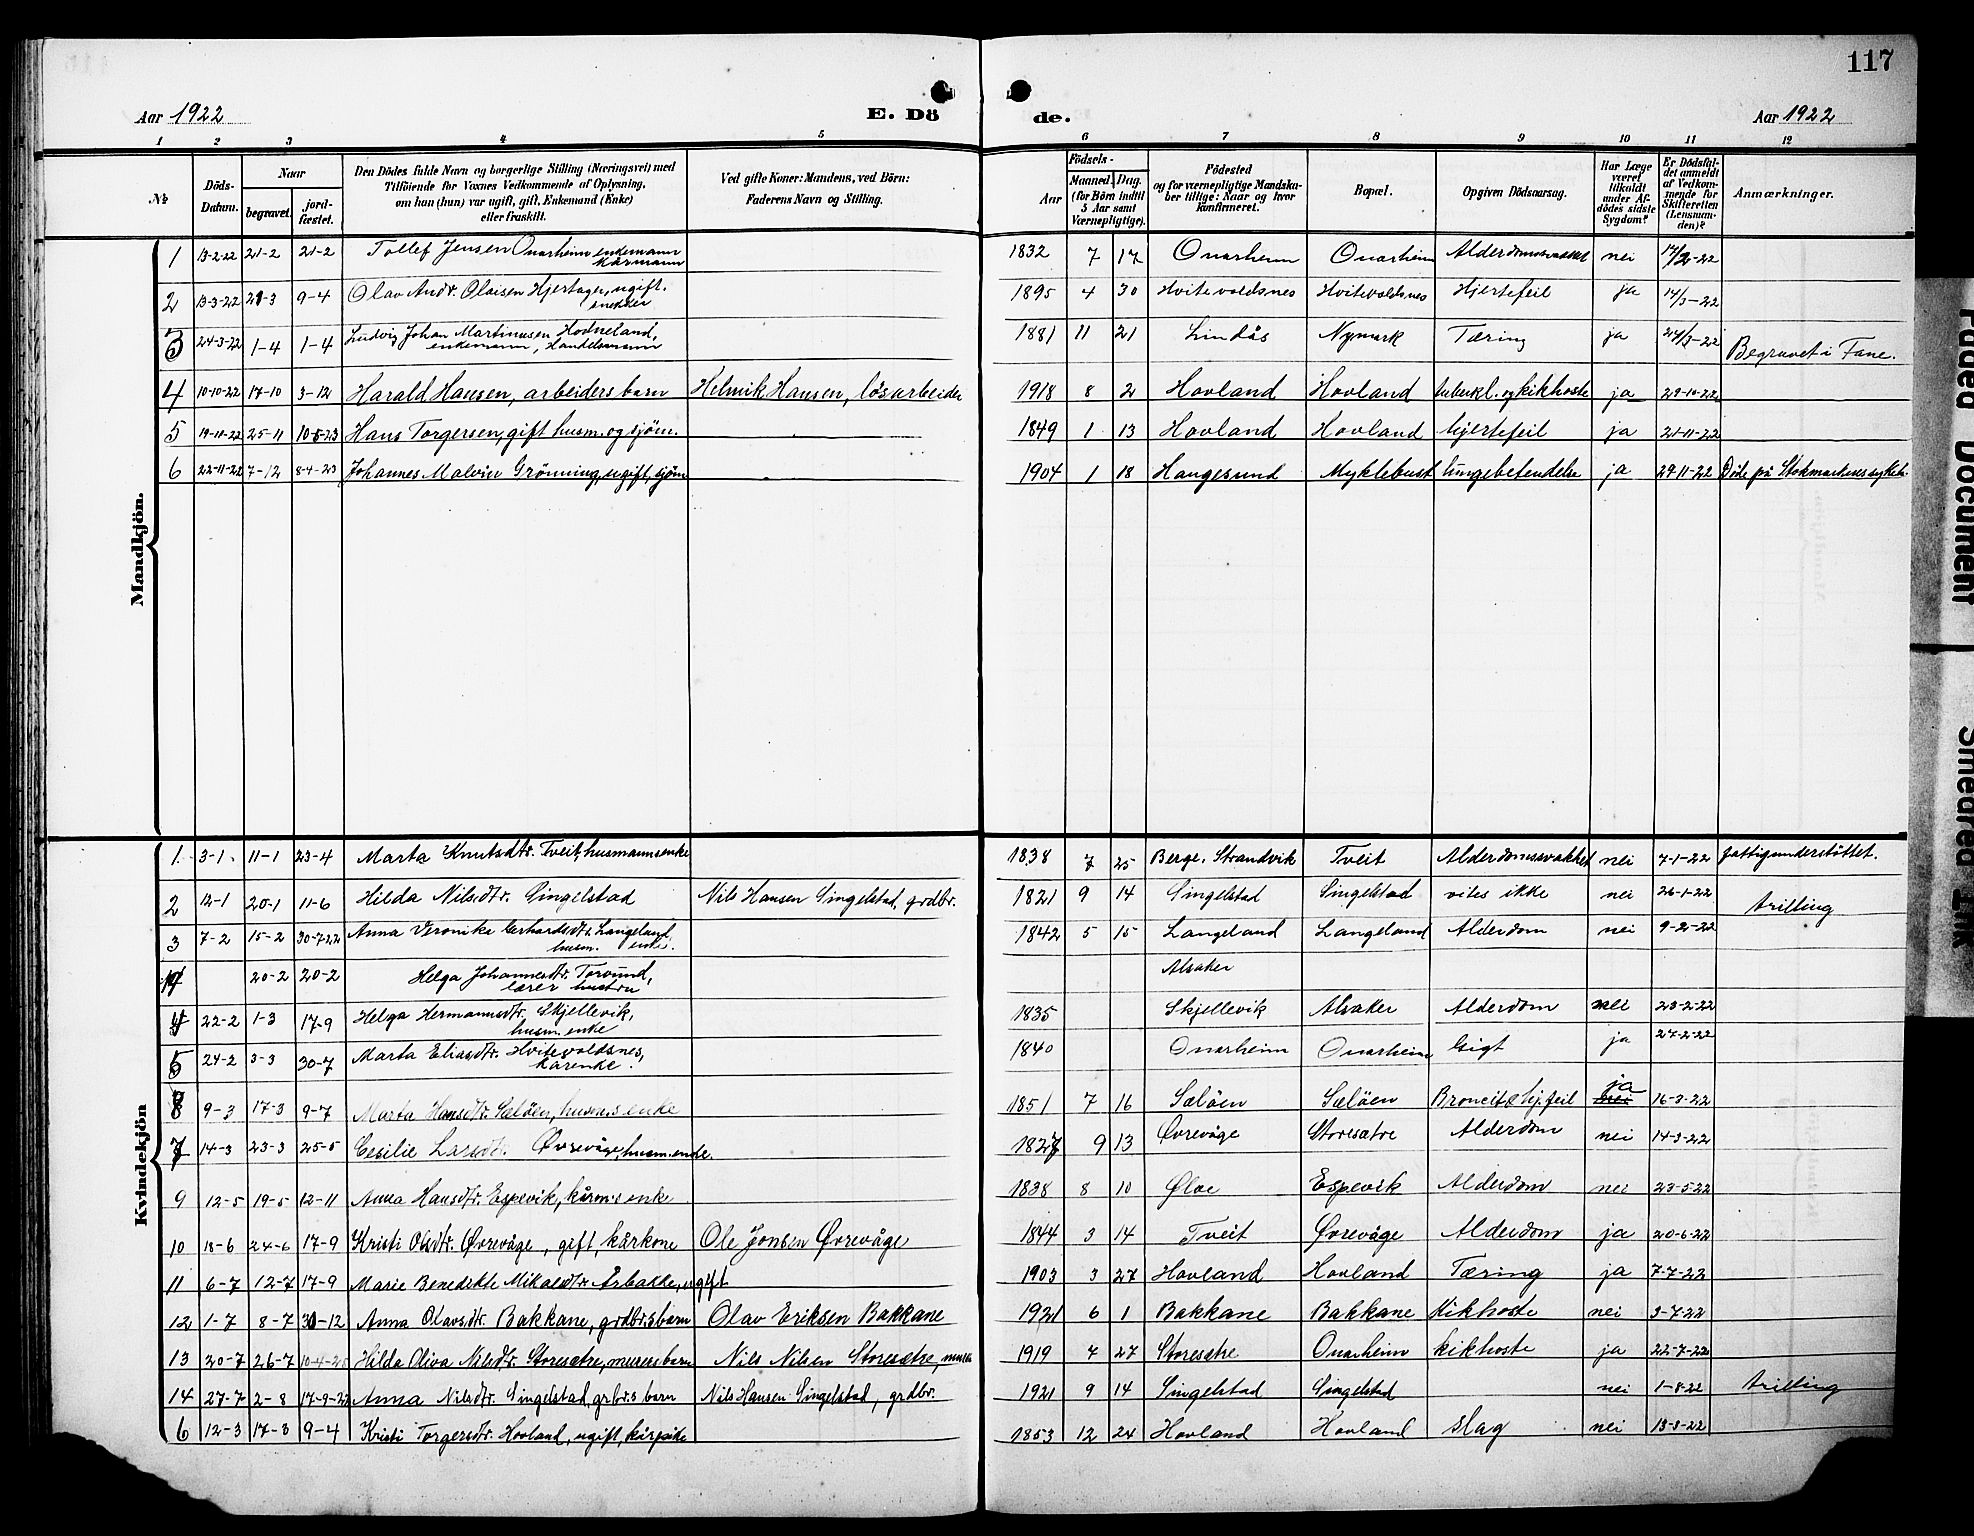 117
Aar 1922
E. Dö
de.
Aar 1922
1 2 3 4 5 6 7 8 9 10 11 12
№
Döds-
Datum.
Naar
begravet.
jord-
fæstet.
Den Dödes fulde Navn og borgerlige Stilling (Næringsvei) med
Tilföiende for Voxnes Vedkommende af Oplysning,
om han (hun) var ugift, gift, Enkemand (Enke)
eller fraskilt.
Ved gifte Koner: Mandens, ved Börn:
Faderens Navn og Stilling.
Födsels-
Aar
Maaned. Dag.
(for Börn indtil
5 Aar samt
Værnepligtige).
Födested
og for værnepligtige Mandska-
ber tillige: Naar og hvor
konfirmeret.
Bopæl.
Opgiven Dödsaarsag.
Har Læge
været
tilkaldt
under Af-
dödes sidste
Sygdom?
Er Dödsfal-
det anmeldt
af Vedkom-
mende for
Skifteretten
(Lensman-
den)?
Anmærkninger.
Mandkjön.
1 13-2-22 21-2 21-2 Tollef Jensen Onarheim enkemann kårmann 1832 7 17 Onarheim Onarheim nei 17/2-22
2 13-3-22 21-3 9-4 Olav Andr. Olaisen Hjertager, ugift. snekker 1895 4 30 Hvitevoldsnes Hvitevoldsnes Hjertefeil ja 14/3-22
3 24-3-22 1-4 1-4 Ludvig Johan Martinusen Hodneland, enkemann, Handelsmann 1881 11 21 Lindås Nymark Tæring ja 24/3-22 Begravet i Fane.
4 10-10-22 17-10 3-12 Harald Hansen, arbeiders barn Helmik Hansen, løsarbeider 1918 8 2 Hovland Hovland tuberkl. og kikhoste ja 29-10-22
5 19-11-22 25-11 10-5-23 Hans Torgersen, gift husm. og sjøm. 1849 1 13 Hovland Hovland hjertefeil ja 21-11-22
6 22-11-22 7-12 8-4-23 Johannes Malvin Grønning, ugift, sjøm 1904 1 18 Haugesund Myklebust lungebetendelse ja 29-11-22 Døde på Stokmarknes sykeh.
Kvindekjön
1 3-1 11-1 23-4 Marta Knutsdtr. Tveit, husmannsenke 1838 7 25 Berge, Strandvik Tveit Alderdomssvakhet nei 7-1-22 fattigunderstøttet.
2 12-1 20-1 11-6 Hilda Nilsdtr. Singelstad Nils Hansen Singelstad, grdbr. 1821 9 14 Singelstad Singelstad vites ikke nei 26-1-22 trilling
3 7-2 15-2 30-7-22 Anna Veronike Gerhardsdtr. Langeland, husm. enke. 1842 5 15 Langeland Langeland Alderdom nei 9-2-22
4 20-2 20-2 Helga Johannesdtr. Torsund, lærer hustru Alsaker
4 22-2 1-3 17-9 Helga Hermannsdtr. Skjellevik, husm. enke 1835 Skjellevik Alsaker Alderdom nei 23-2-22
5 24-2 3-3 30-7 Marta Eliasdtr. Hvitevoldsnes, kårenke. 1840 Onarheim Onarheim Gigt ja 27-2-22
8 9-3 17-3 9-7 Marta Hansdtr. Sæløen, husm.s enke 1851 7 16 Sæløen Sæløen Broncit & hj.feil ja nei 16-3-22
7 14-3 23-3 25-5 Cesilie Larsdtr. Øvrevåge, husm.enke. 1827 9 13 Øvrevåge Storesætre Alderdom nei 14-3-22
9 12-5 19-5 12-11 Anna Hansdtr. Espevik, kårm.s enke 1838 8 10 Ølve Espevik Alderdom nei 23-5-22
10 18-6 24-6 17-9 Kristi Olsdtr. Øvrevåge, gift, kårkone Ole Jonsen Øvrevåge 1844 3 14 Tveit Øvrevåge Alderdom ja 20-6-22
11 6-7 12-7 17-9 Marie Benedikte Mikalsdtr. Årbakke, ugift 1903 3 27 Hovland Hovland Tæring ja 7-7-22
12 1-7 8-7 30-12 Anna Olavsdtr. Bakkane, grdbr.s barn Olav Eriksen Bakkane 1921 6 1 Bakkane Bakkane Kikhoste nei 3-7-22
13 20-7 26-7 10-4-25 Hilda Oliva Nilsdtr. Storesætre, murers barn Nils Nilsen Storesætre, murer 1919 4 27 Storesætre Onarheim kikhoste ja 22-7-22
14 27-7 2-8 17-9-22 Anna Nilsdtr. Singelstad, grbr.s barn Nils Hansen Singelstad, grdbr. 1921 9 14 Singelstad Singelstad nei 1-8-22 trilling
6 12-3 17-3 9-4 Kristi Torgersdtr. Hovland, ugift, 1853 12 24 Hovland Hovland slag nei 13-3-22
Faded Document
Smeared Ink